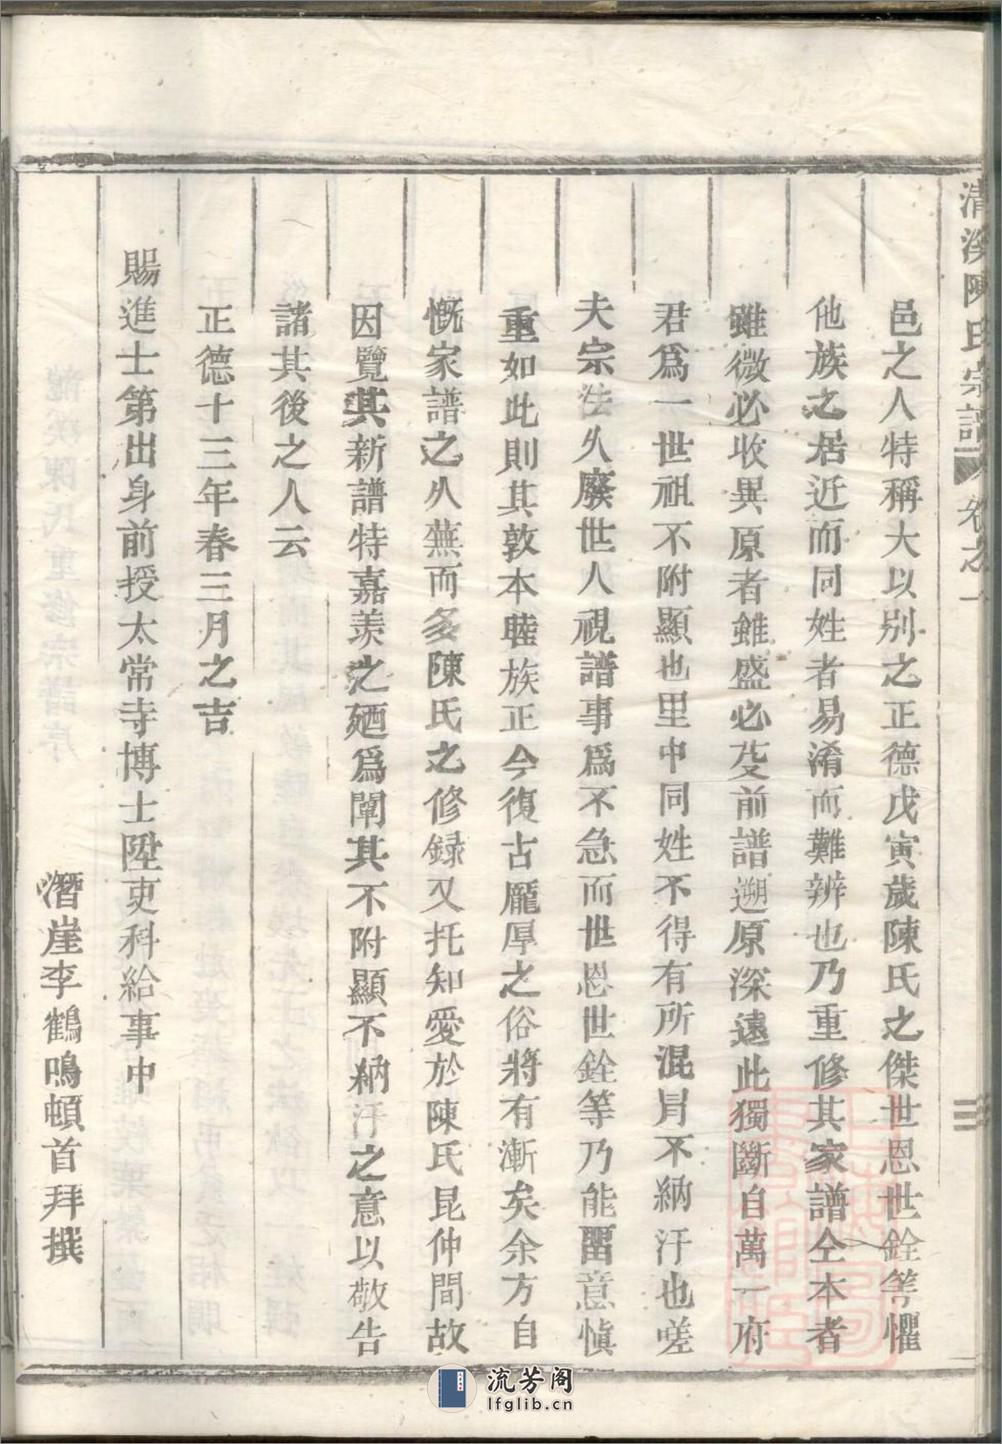 清溪陳氏宗譜 卷之一
邑之人特稱大以別之正德戊寅歲陳氏之傑世恩世銓等懼
他族之居近而同姓者易淆而難辨也乃重修其家譜仝本者
雖微必收異原者雖盛必芟前譜遡原深遠此獨斷自萬一府
君爲一世祖不附顯也里中同姓不得有所混冐不納汙也嗟
夫宗法乆廢世人視譜事爲不急而世恩世銓等乃能畱意慎
重如此則其敦本睦族正今復古龐厚之俗將有漸矣余方自
慨家譜之乆蕪而多陳氏之修録又托知愛於陳氏昆仲間故
因覽其新譜特嘉羨之廼爲闡其不附顯不納汙之意以敬告
諸其後之人云
正德十三年春三月之吉
賜進士第出身前授太常寺博士陞吏科給事中
潛崖李鶴鳴頓首拜撰
流芳阁
lfglib.cn